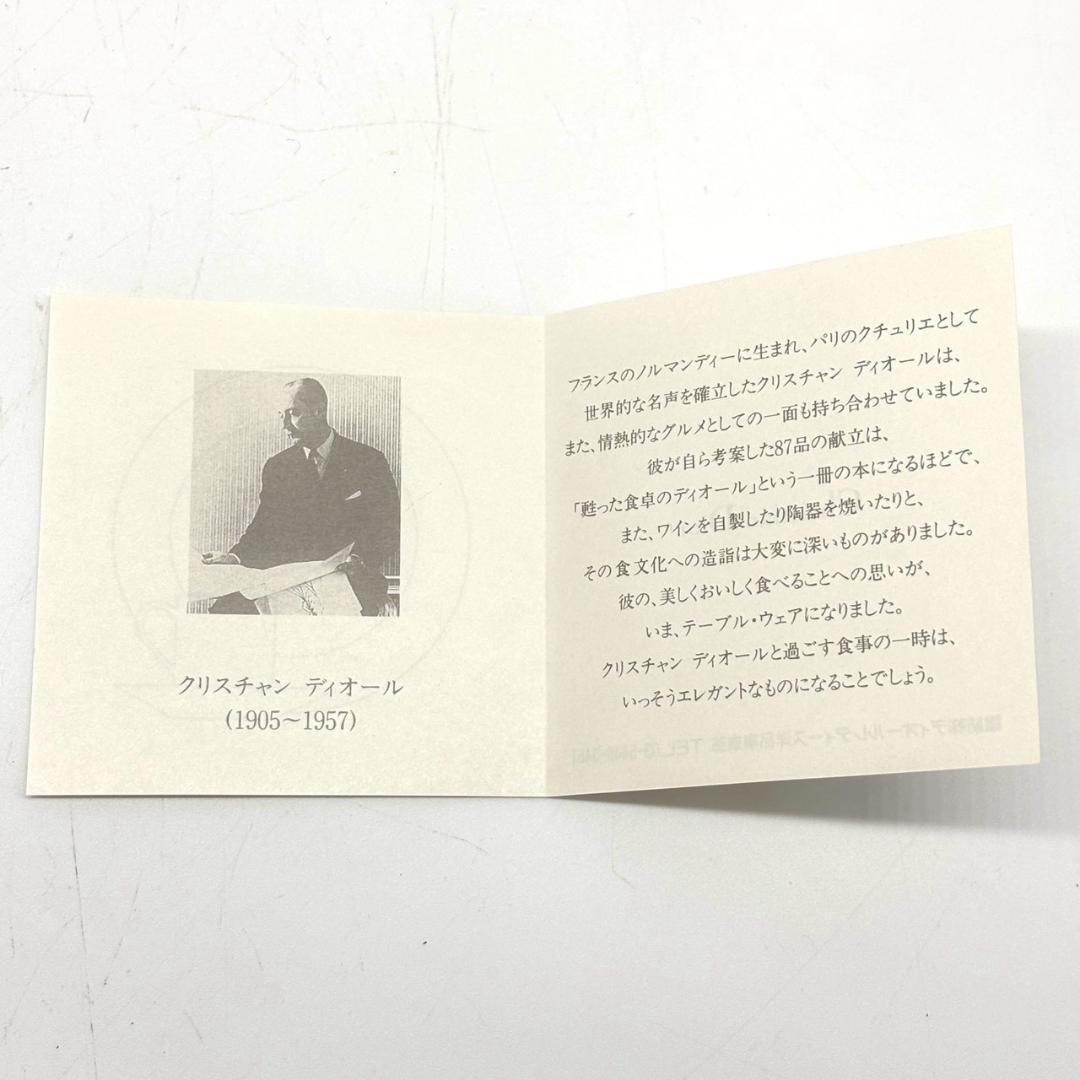 クリスチャン ディオール
(1905〜1957)
フランスのノルマンディーに生まれ、パリのクチュリエとして
世界的な名声を確立したクリスチャン ディオールは、
また、情熱的なグルメとしての一面も持ち合わせていました。
彼が自ら考案した87品の献立は、
「甦った食卓のディオール」という一冊の本になるほどで、
また、ワインを自製したり陶器を焼いたりと、
その食文化への造詣は大変に深いものがありました。
彼の、美しくおいしく食べることへの思いが、
いま、テーブル・ウェアになりました。
クリスチャン ディオールと過ごす食事の一時は、
いっそうエレガントなものになることでしょう。